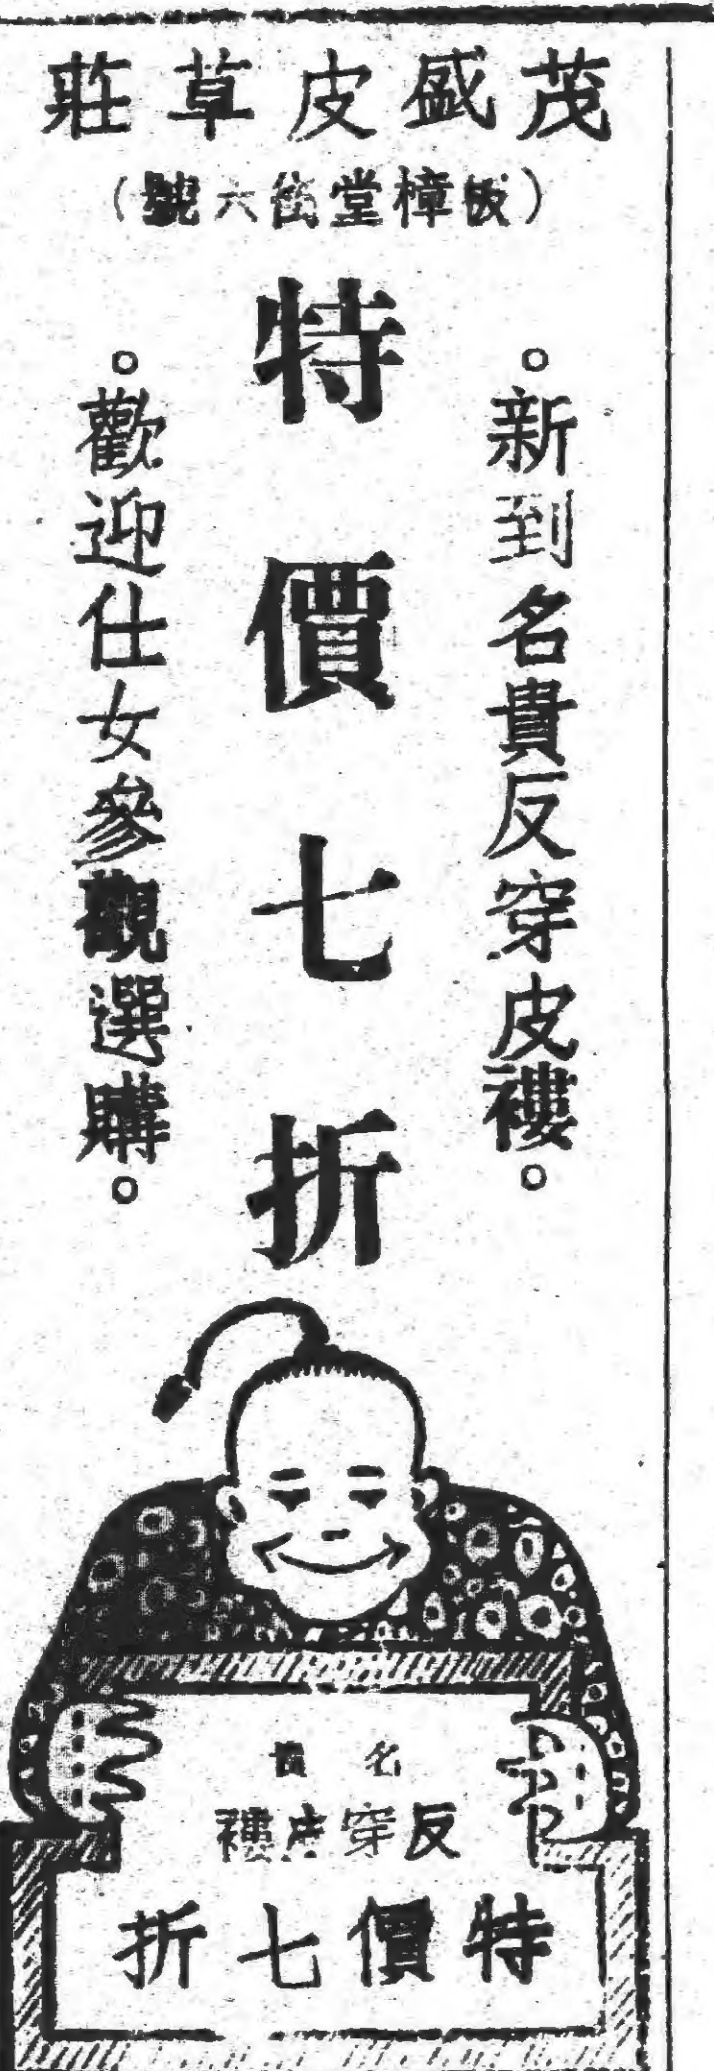 茂盛皮草莊
（板樟堂街六號）
。新到名貴反穿皮褸。
特價七折
。歡迎仕女參觀選購。
名貴
反穿皮褸
特價七折